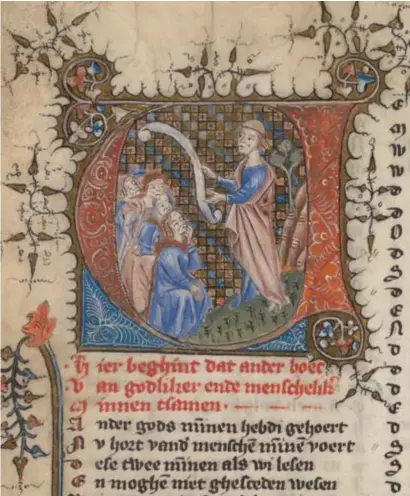 Hier beghint dat ander boec
Van godliker ende menschelik
Minnen tsamen
Ander gods mīnen hebdi gehoert
Nv hort vand menschē mīnē voert
Dese twee mīnen als wi lesen
En moghen niet ghesceden wesen